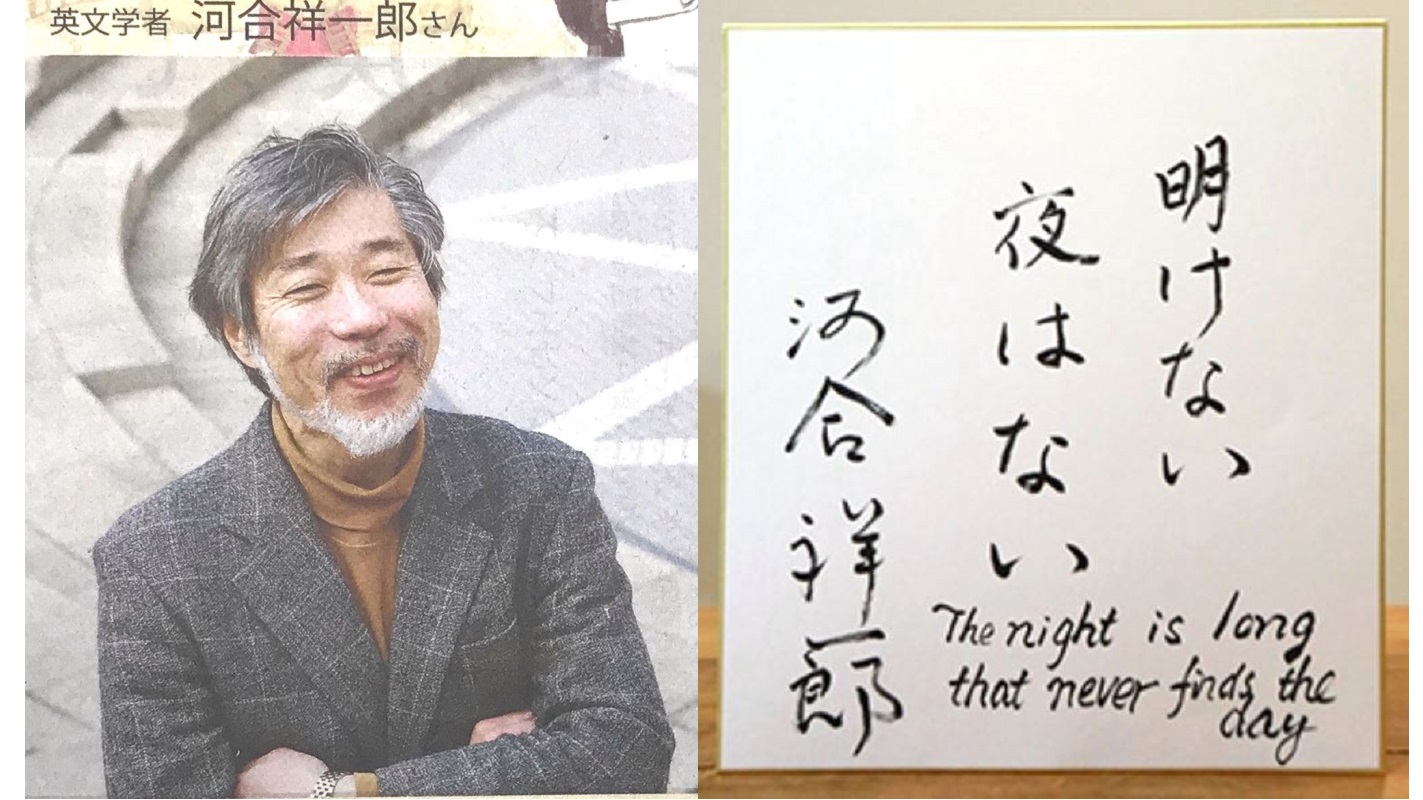 英文学者 河合祥一郎さん
明けない
夜はない
河合祥一郎
The night is long
that never finds the
day